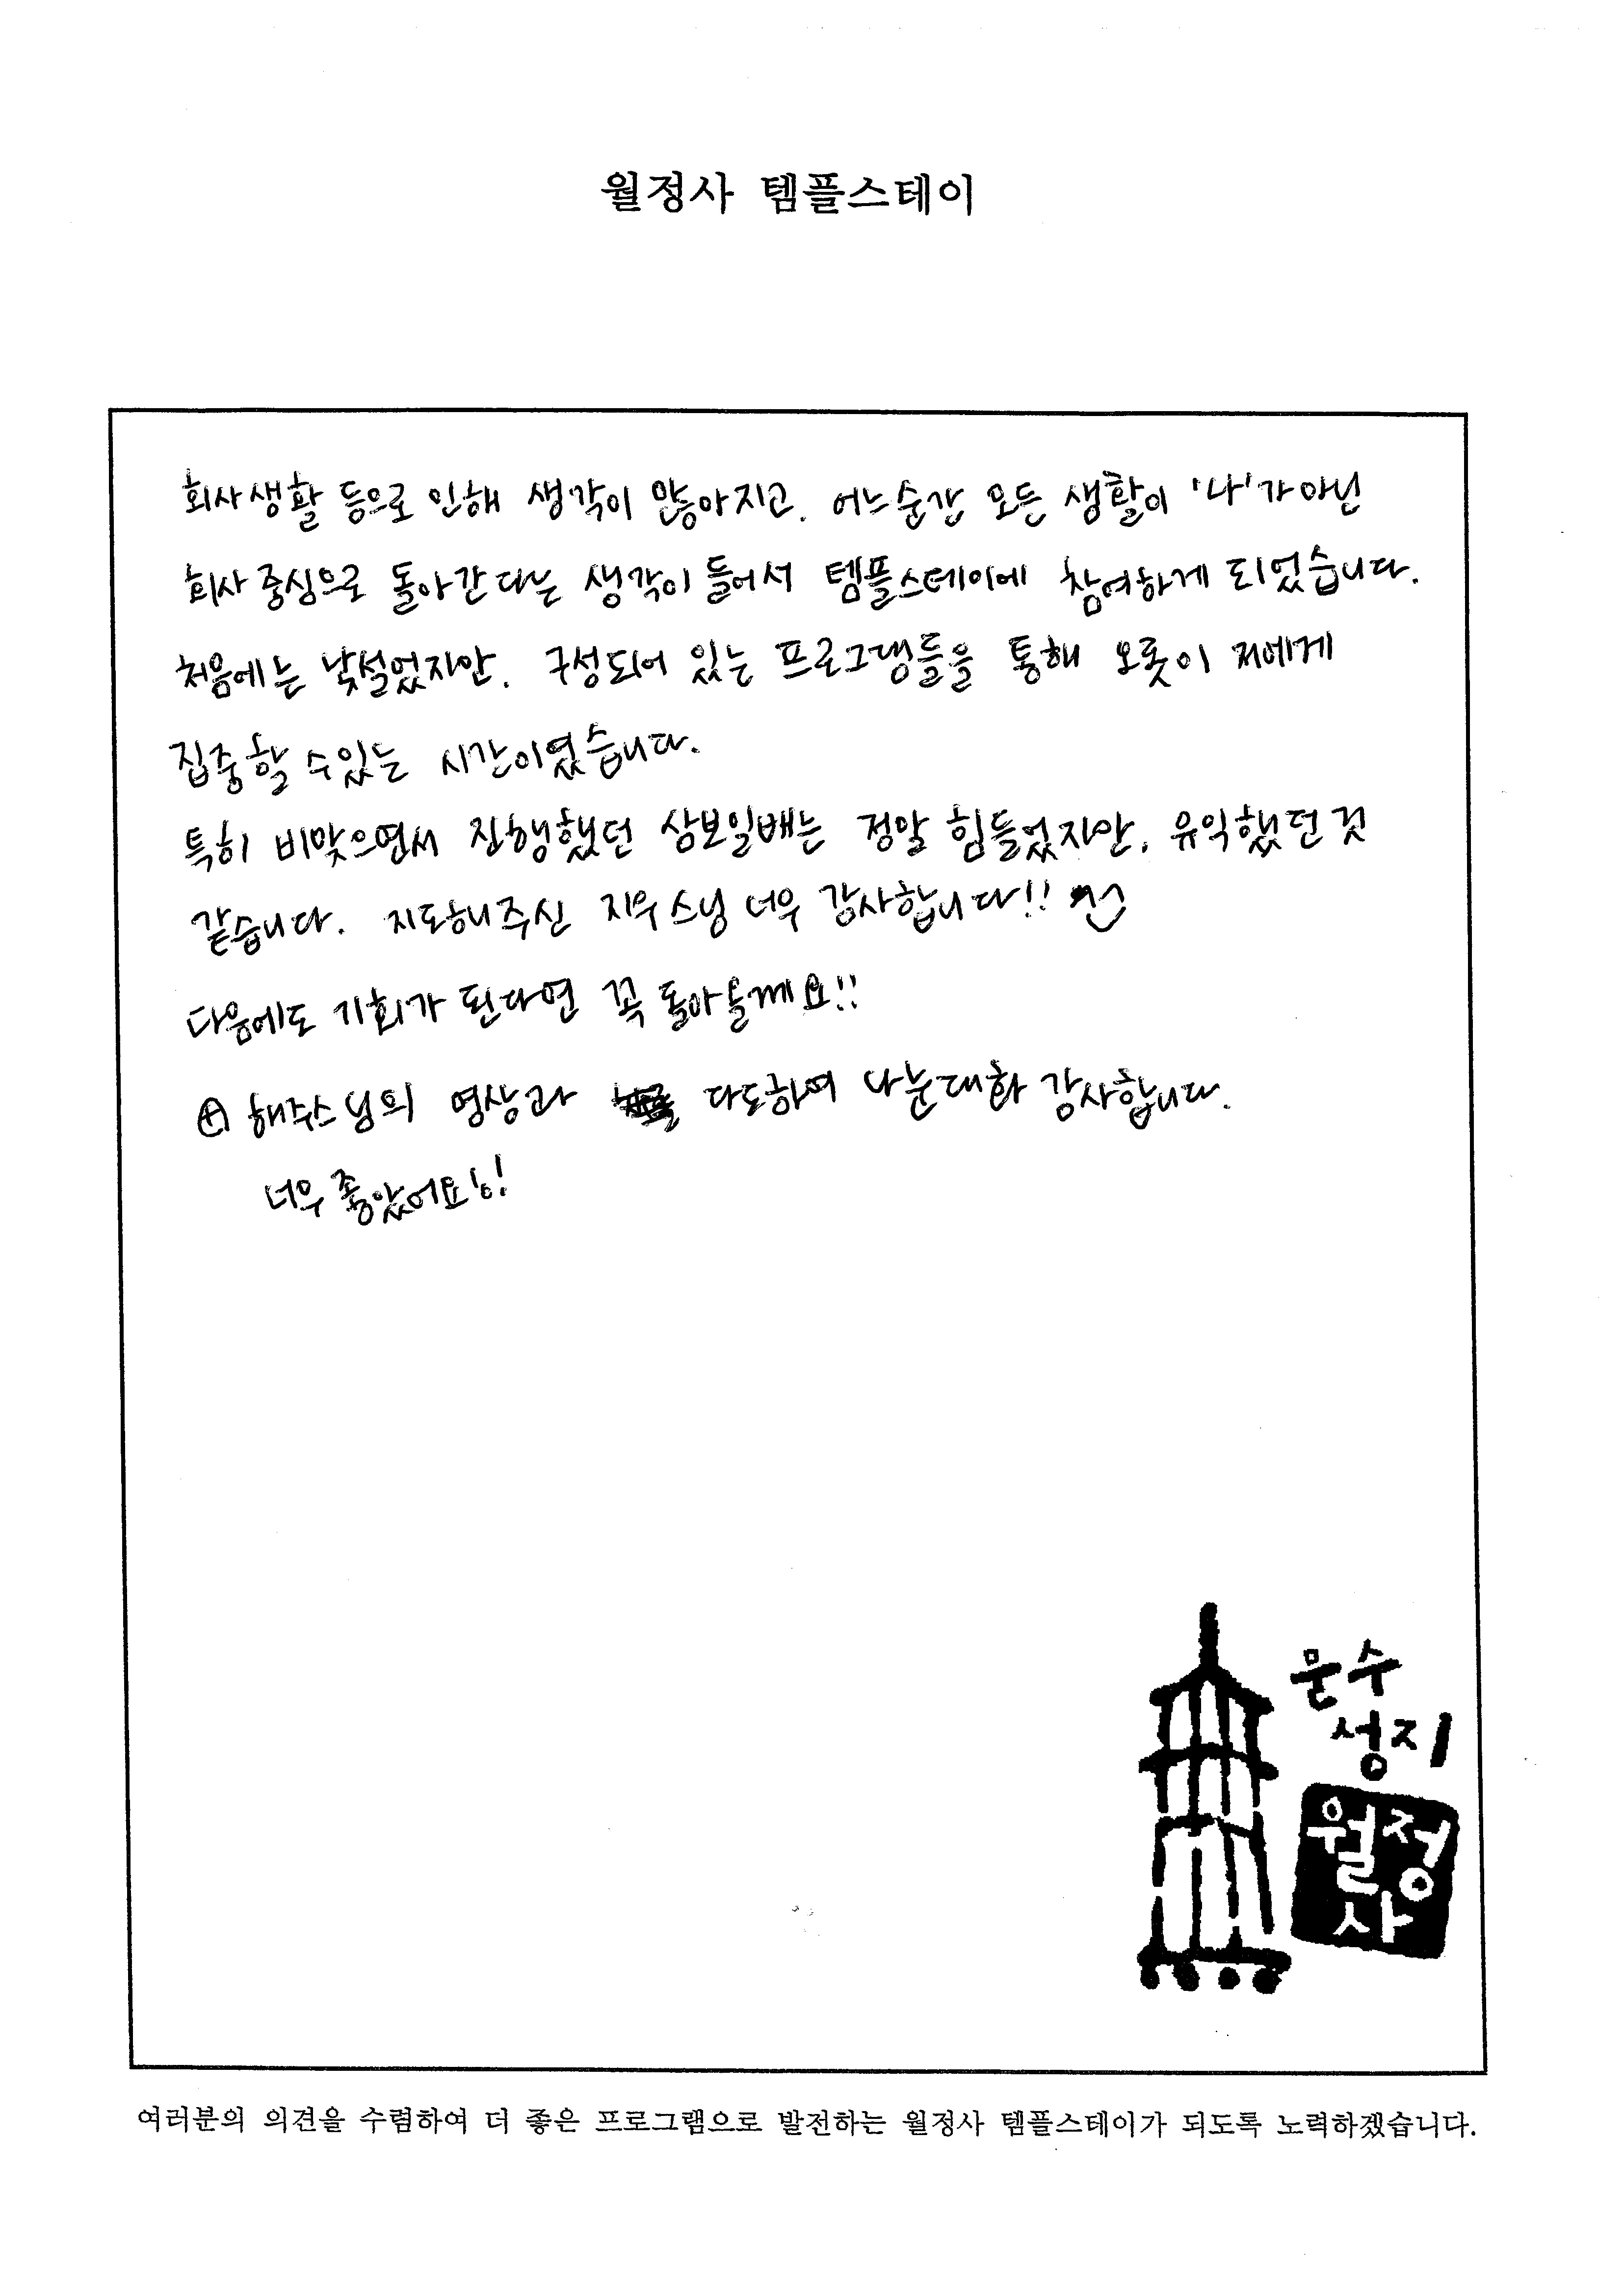 월정사 템플스테이
회사생활 등으로 인해 생각이 많아지고. 어느순간 모든 생활이 '나'가 아닌
회사 중심으로 돌아간다는 생각이 들어서 템플스테이에 참여하게 되었습니다.
처음에는 낯설었지만. 구성되어 있는 프로그램들을 통해 오롯이 저에게
집중할 수있는 시간이였습니다.
특히 비맞으면서 진행했던 삼보일배는 정말 힘들었지만. 유익했던 것
같습니다. 지도해주신 지우스님 너우 감사합니다!!
다음에도 기회가 된다면 꼭 돌아올께요!!
⊕ 해주스님의 명상과 다도하여 나눈대화 감사합니다.
너우 좋았어요!!
문수
성지
월정
사
여러분의 의견을 수렴하여 더 좋은 프로그램으로 발전하는 월정사 템플스테이가 되도록 노력하겠습니다.